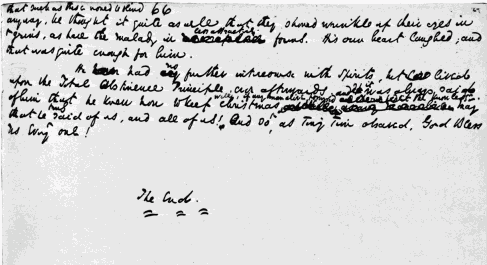 66
anyway, he thought it quite as well that they should wrinkle up their eyes in
grins, as have the malady in less attractive forms. His own heart laughed; and
that was quite enough for him.
He had no further intercourse with Spirits, but lived
upon the Total Abstinence Principle, ever afterwards; and it was always said
of him that he knew how to keep Christmas well, if any man alive possessed the knowledge. May
that be said of us, and all of us! And so, as Tiny Tim observed, God Bless
Us Every one!
The End.